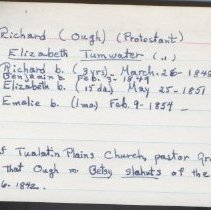 Richard (Ough) (Protestant)
Elizabeth Tumwater (")
Richard b. (3 yrs) March. 26 - 184
Benjamin b. Feb. 3 - 1849
Elizabeth b. (15 da) May 25 - 1851
Emalie b. (1 mo) Feb. 9 - 1854 -
f Tualatin Plains Church, pastor Gr
That Ough m. Betsy slahuts of the
6. 1842.